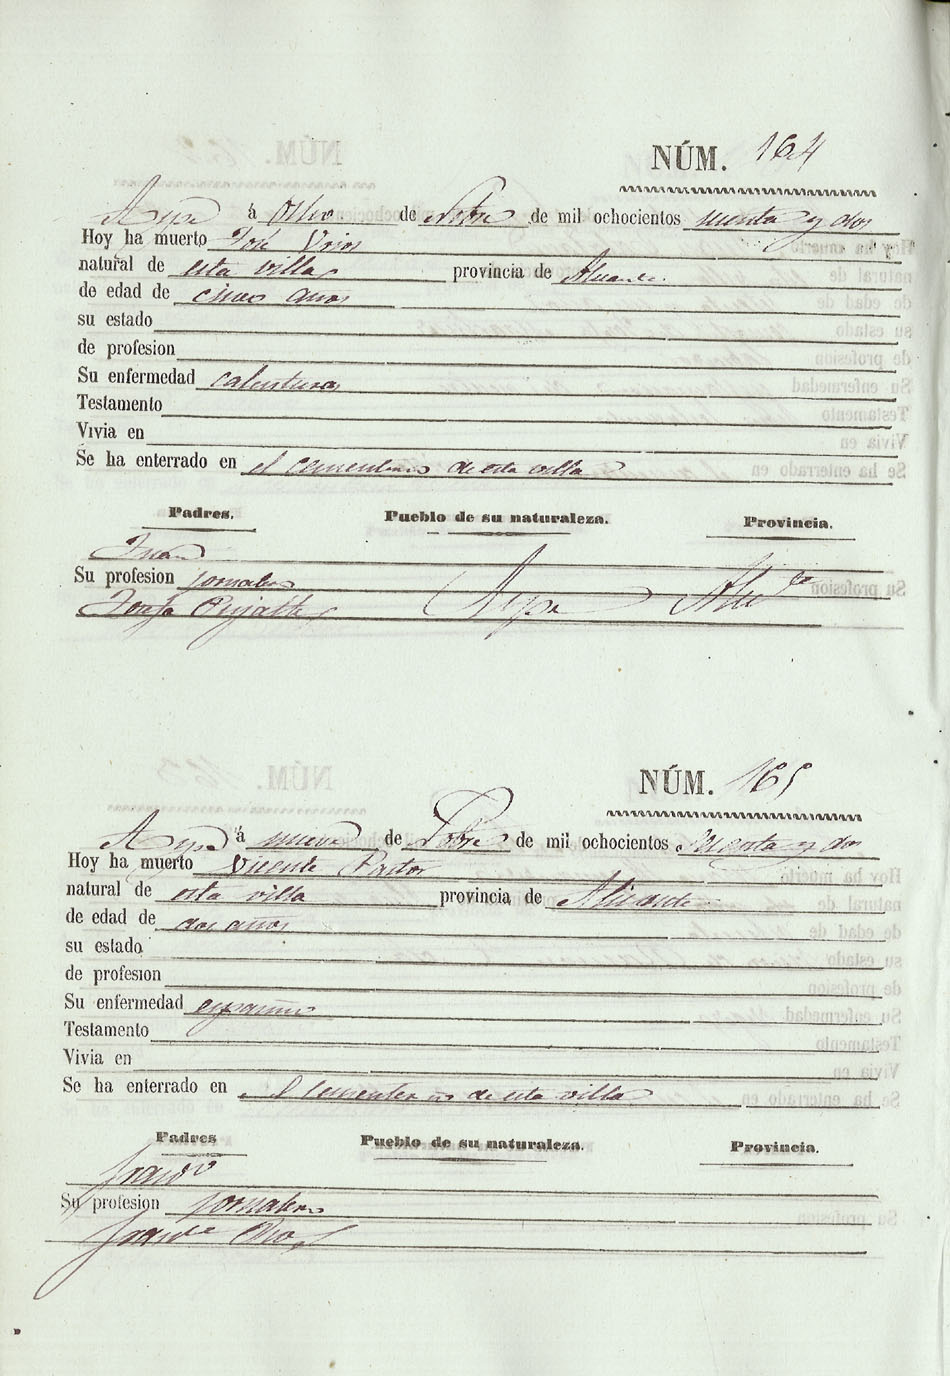 NÚM. 164
Aspe á Ocho de Sobre de mil ochocientos sesenta y dos
Hoy ha muerto José Urios
natural de esta villa provincia de Alicante
de edad de cinco años
su estado
de profesion
Su enfermedad calenturas
Testamento
Vivia en
Se ha enterrado en el cementerio de esta villa
Padres. Pueblo de su naturaleza. Provincia.
Juan
Su profesion jornalero
Josefa Aspe
NÚM. 165
Aspe á nueve de de mil ochocientos sesenta y dos
Hoy ha muerto Vicente Pastor
natural de esta villa provincia de Alicante
de edad de dos años
su estado
de profesion
Su enfermedad
Testamento
Vivia en
Se ha enterrado en el Cementerio de esta villa
Padres Pueblo de su naturaleza. Provincia.
Su profesion jornalero